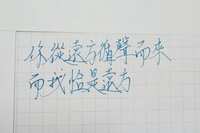 你從遠方循聲而來
而我恰是遠方